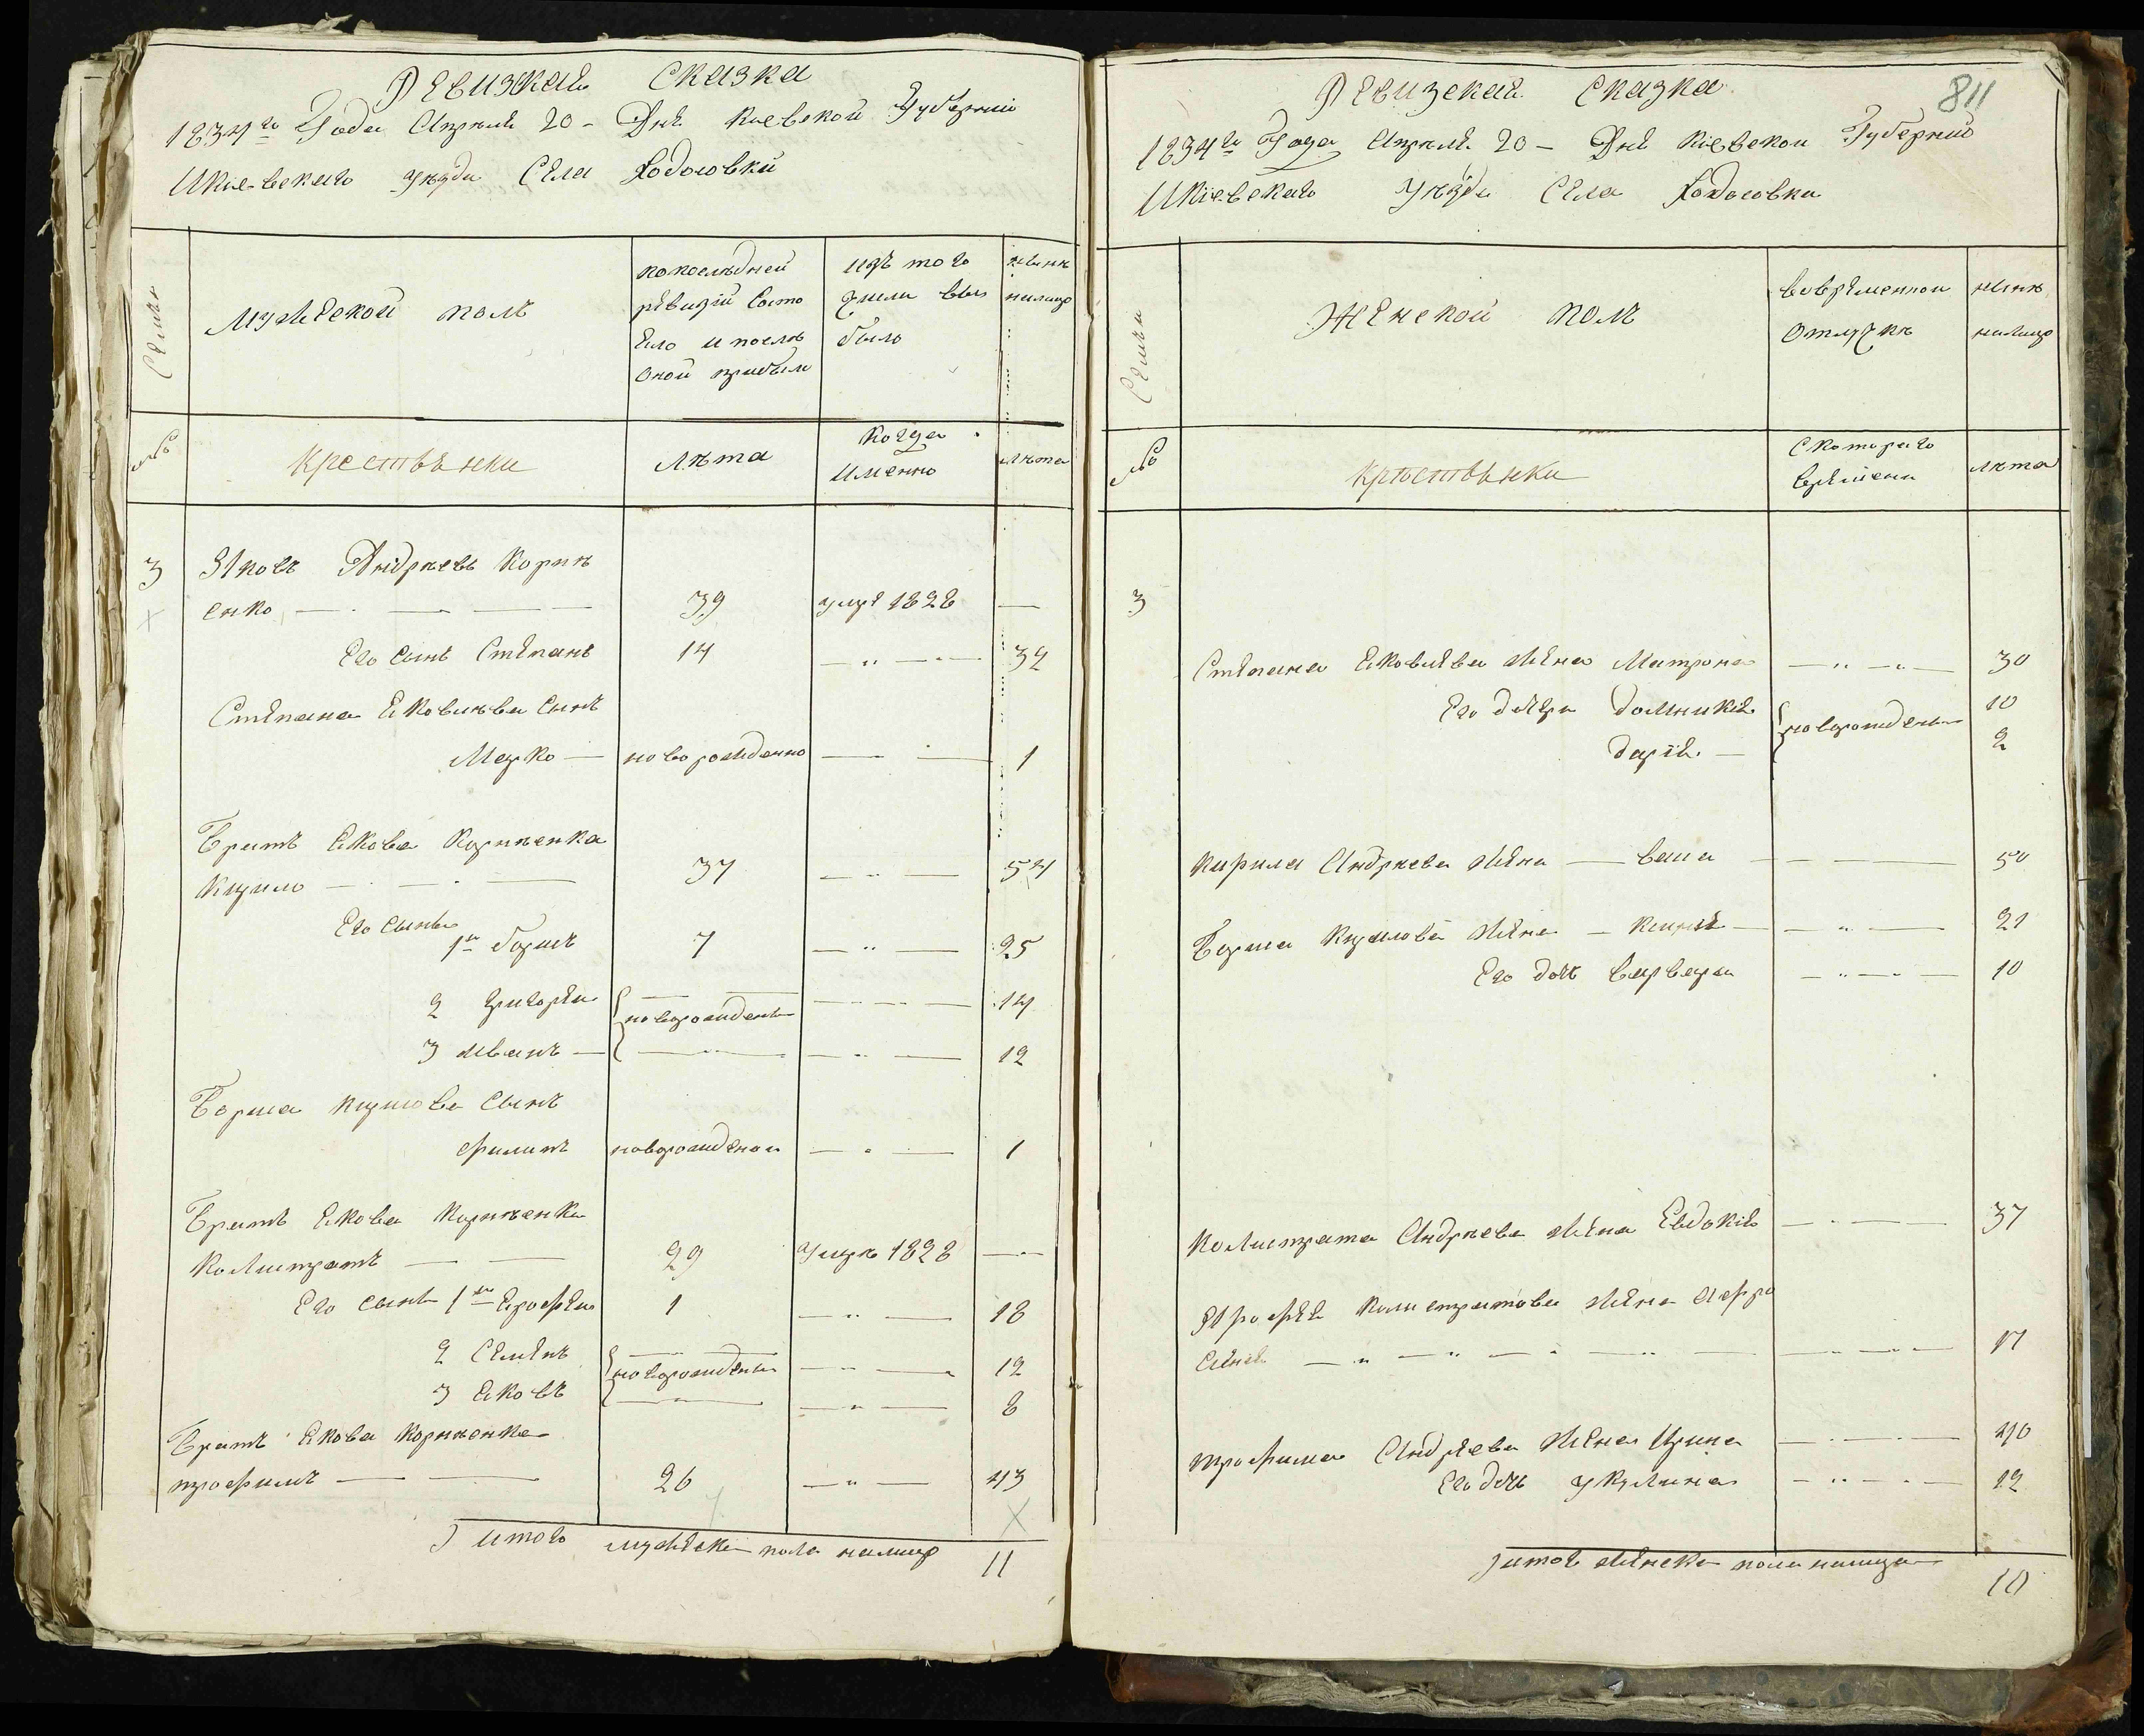 Ревизская Сказка
1834го Года Апреля 20 – Дня Киевской Губерніи
Икіевскаго уѣзда Села Ходосовки
Семьи
Мужеской полъ
попослѣдней
ревизіи Состо
Яло и послѣ
Оной прибыло
изъ того
числа выы
было
нынѣ
налицо
№
крестьянки
лѣта
Когда
Именно
лѣта
3 Яковъ Андрѣевъ Корнѣ
енко 39 умре 1828 —
Его сынъ Степанъ 14 32
Степана Яковлѣва Сынъ
Марко — новорожденно 1
Братъ Якова Корнѣенка
Кирило 37 54
Его сыны
1й борисъ 7 25
2 григорѣи новорожденны 14
3 иванъ — 12
Бориса кирилова Сынъ
филипъ новорожденои 1
Братъ Якова Корнѣенка
Калистратъ 29 умрѣ 1828 —
Его сыны 1й Ерофѣи 1 18
2 Семенъ новорожденны 12
3 Яковъ 8
Братъ Якова Корнѣенка
трофимъ 26 43
итого мужеска пола налицо 11
811
Ревизская Сказка
1834го Года Апреля 20 – Дня Кіевской Губерніи
Икіевскаго Уѣзда Села Ходосовки
Семьи
Женской полъ
вовременной
отлучкѣ
нынѣ
налицо
№
крестьянки
Скотораго
времени
лѣта
3
Степана Яковлева жена Матрона 30
Его дочери домникія новорожденны 10
дарія — 2
Кирила Андрѣева жена — васа 50
Бориса Кирилова жена — 21
Его дочь варвара 10
Калистрата Андрѣева жена Евдокія 37
Ярофѣя Калистратова жена Афро
сенія 17
трофима Андрѣева жена Ирина 40
Его дочь укулина 12
итого женска пола налицо 10